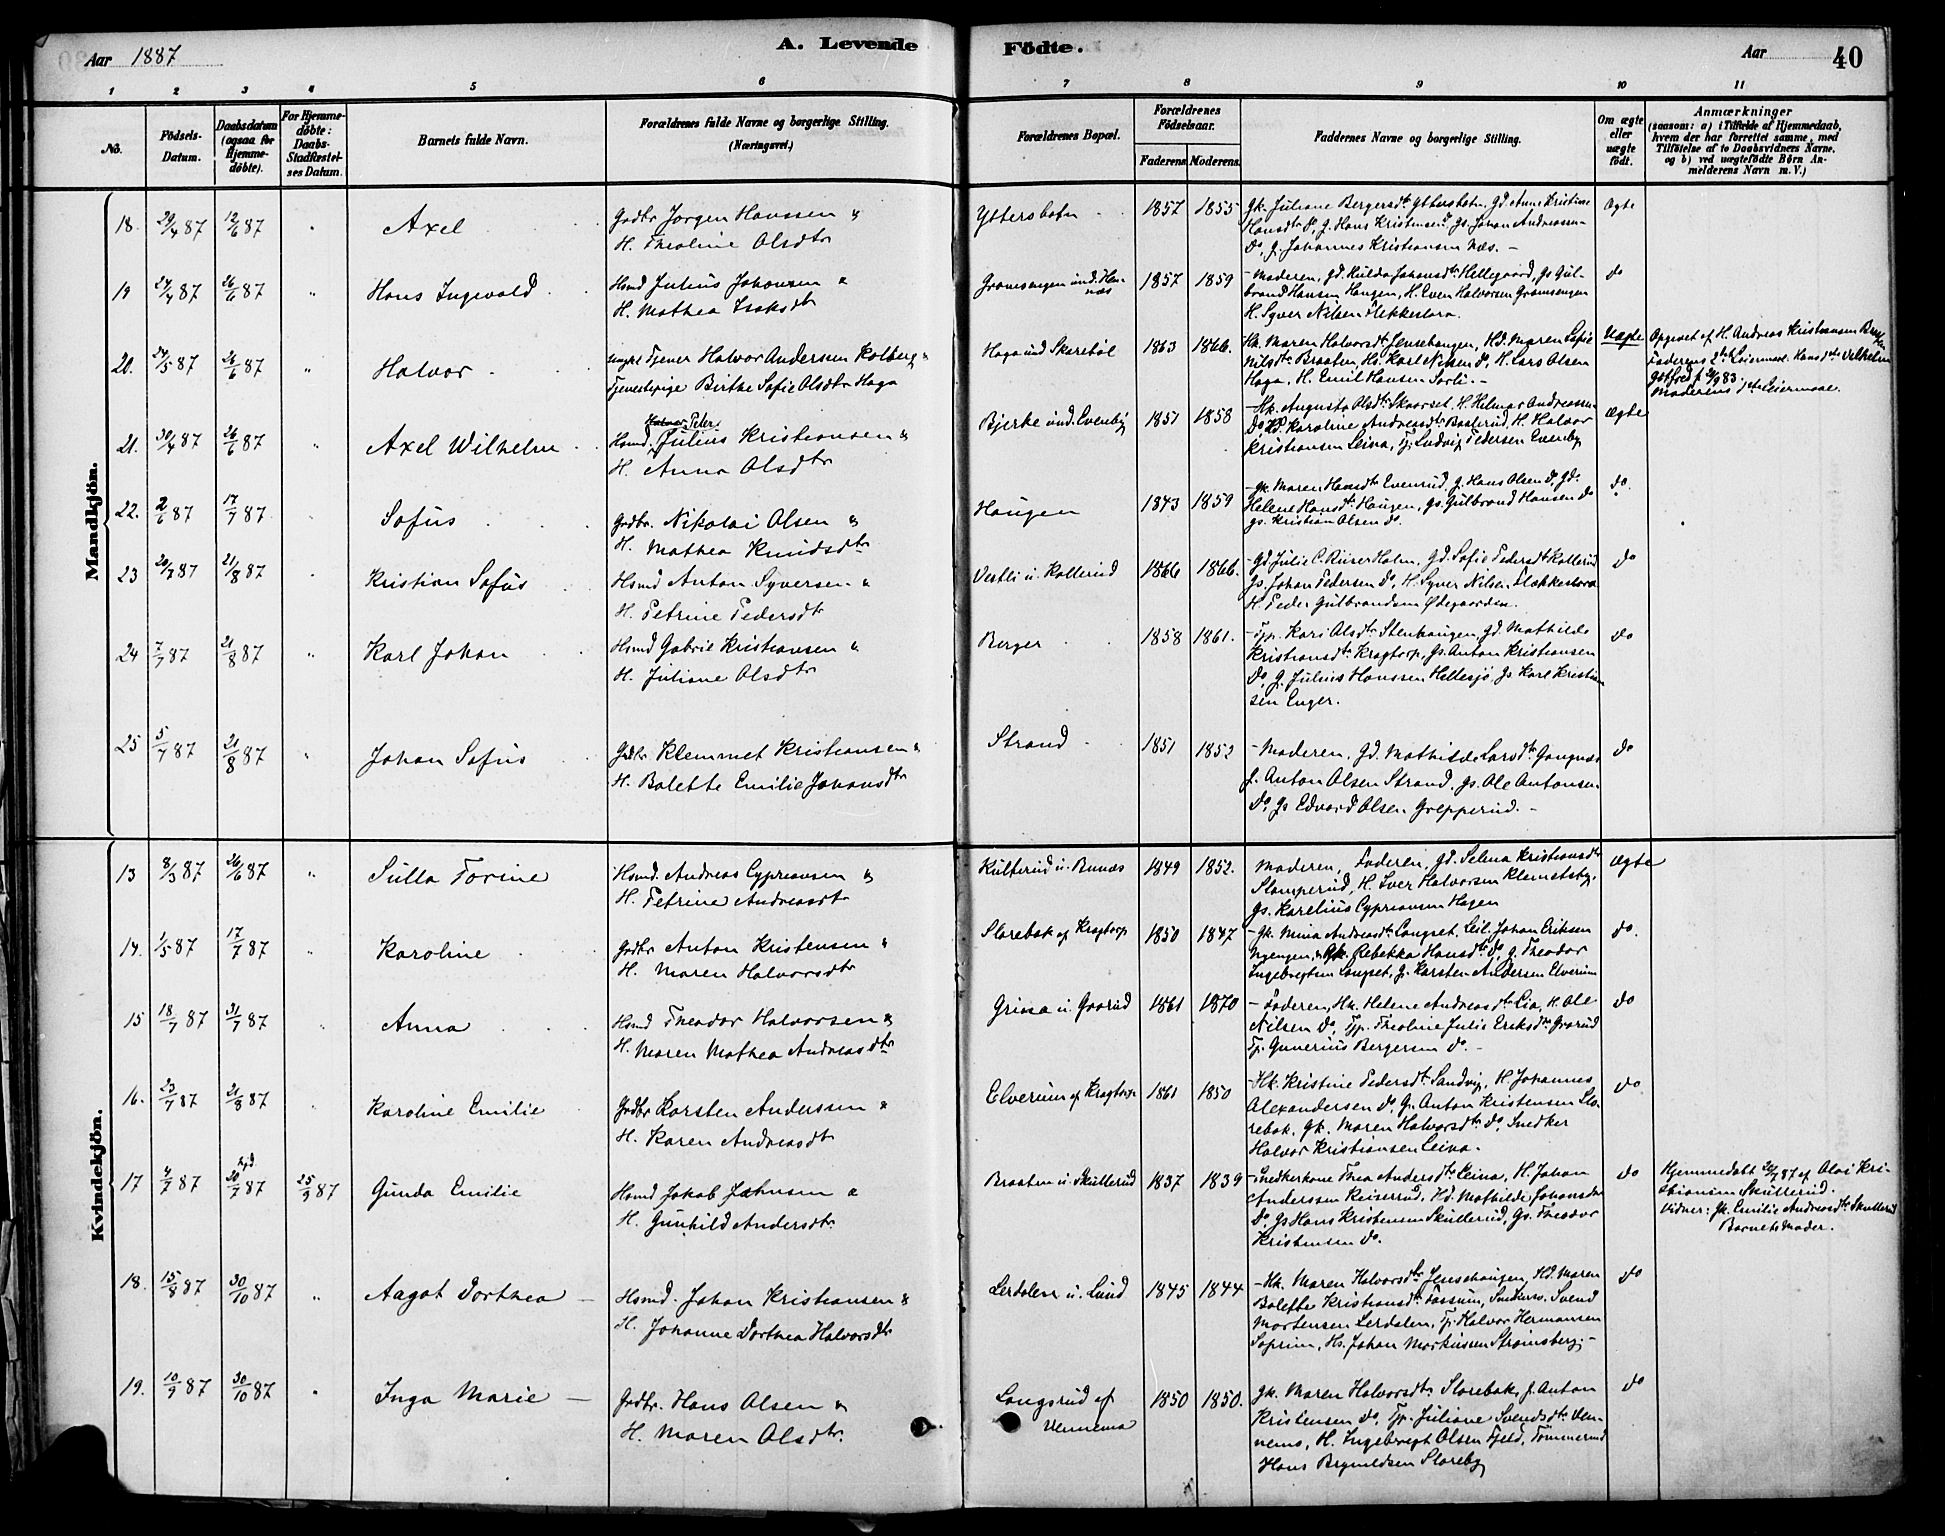 Aar 1887
A. Levende
Födte.
Aar
40
1 2 3 4 5 6 7 8 9 10 11
No.
Födsels-
Datum.
Daabsdatum
(ogsaa for
Hjemme-
döbte).
For Hjemme-
döbte:
Daabs-
Stadfæstel-
ses Datum.
Barnets fulde Navn.
Forældrenes fulde Navne og borgerlige Stilling.
(Næringsvei.)
Forældrenes Bopæl.
Forældrenes
Födselsaar.
Faderens. Moderens.
Faddernes Navne og borgerlige Stilling.
Om ægte
eller
uægte
födt.
Anmærkninger
(saasom: a) i Tilfælde af Hjemmedaab,
hvem der har forrettet samme, med
Tilföielse af to Daabsvidners Navne,
og b) ved uægtefödte Börn An-
melderens Navn m. V.)
Mandkjön.
18. 29/4 87 12/6 87 " Axel
Grdbr Jorgen Hanssen &
H. Theoline Olsdtr
Yttersbotn 1857 1855
Gk. Juliane Bergersdt. Yttersbotn, Gd. Anne Kristine
Hansdtr Do, G. Hans Kristensen Do, Gs. Johan Andreassen
Do, G. Johannes Kristiansen Næs. –
Ægte
19 24/4 87 26/6 87 " Hans Ingvald
Hsmd Julius Johansen &
H. Mathea Isaksdtr
Gransengen und. Han-
næs 1857 1859
– Moderen, Gd. Hulda Johansdtr. Hellegaard, Gs Gul-
brand Hansen Haugen, H. Even Halvorsen Gransengen
H. Syver Nilsen Flekkestara.
do
20. 24/5 87 26/6 87 " Halvor
ungkl Tjener Halvor Andersen Kolberg &
Tjenestepige Birthe Sofie Olsdtr Haga
Haga und Skerebøl 1863 1866.
Hk. Maren Halvorsdtr. Jenshaugen, Hd. Maren Sofie
Nilsdtr. Braaten, Hs. Karl Nilsen Do, H. Lars Olsen
Haga, H. Emil Hansen Sorli. –
Uægte
Opgivet af H. Andreas Kristiansen
Faderens 2det Leiermaal. Hans
Gotfred f. 83.
Moderens 1ste Leiermaal.
21. 30/4 87 26/6 87 Axel Wilhelm
Peter
Hsmd. Julius Kristiansen &
H. Anna Olsdtr
Bjerke und. Evenby 1851 1858
– Hk. Augusta Olsdtr. Skaarset, H. Helmar Andreassen
Do, Hd. Karoline Andreasdtr. Baaterud, H. Halvor
Kristiansen Leina, Tj. Ludvig Pedersen Evenby
Ægte
22. 2/6 87 17/7 87 Sofus
Grdbr. Nikolai Olsen &
H. Mathea Knudsdtr
Haugen 1843 1859
– Gk. Maren Hansdtr. Evenrud, G. Hans Olsen Do, Gd.
Helene Hansdtr. Haugen, Gs. Gulbrand Hansen Do
Gs. Kristian Olsen Do.
do.
23 20/7 87 21/8 87 Kristian Sofus
Hsmd Anton Syversen &
H. Petrine Pedersdtr
Vestli u. Kollerud 1866 1866.
– Gd. Julie C. Ruiser Holm, Gd. Sofie Pedersdtr Kollerud
Gs. Johan Pedersen Do, H. Syver Nilsen Flækkestara
H. Peder Gulbrandsen Ødegaarden.
do
24 7/7 87 21/8 87 " Karl Johan
Hsmd Gabriel Kristiansen &
H. Juliane Olsdtr
Berger 1858 1861.
– Tjp. Kari Olsdtr. Stenhaugen, Gd. Mathilde
Kristiansdtr. Kragtorp, Gs. Anton Kristiansen
Do, G. Julius Hanssen Hellesjø, Gs Karl Kristian
sen Enger.
do
25 5/7 87 21/8 87 " Johan Sofus
Grdbr Klemmet Kristiansen &
H. Bolette Emilie Johansdtr
Strand 1851 1852
– Moderen, Gd. Mathilde Larsdtr. Gangnæs
f. Anton Olsen Strand, Gs. Ole Antonsen
Do, Gs Edvard Olsen Grepperud. –
do
Kvindekjön.
13 8/3 87 26/6 87 " Sulla Torine
Hsmd. Andreas Cypriansen &
H. Petrine Andreasdtr
Kulterud u. Bunæs 1849 1852.
Moderen, Faderen, Gd. Selma Kristiansdtr
Slamperud, H. Iver Halvorsen Klemetsby,
Gs. Karelius Cypriansen Hagen
Ægte
14. 1/5 87 17/7 87 " Karoline
Grdbr Anton Kristensen &
H. Maren Halvorsdtr
Slorebak af Kragtorp 1850 1847
– Gk. Mina Andreasdtr. Langset, Leil. Johan Eriksen
Nyengen, Gk. Rebekka Hansdtr. Do, G. Theodor
Ingebregtsen Langset, G. Karsten Andersen Elverum
do.
15 18/7 87 31/7 87 " Anna
Hsmd Theodor Halvorsen &
H. Maren Mathea Andreasdtr
Grinna u. Gaarud 1861 1870
– Faderen, Hk. Helene Andreasdtr Lia, H. Ole
Nilsen Do, Tjp. Theoline Julie Eriksdtr. Gaarud
Tj. Gunerius Bergersen Do. –
do
16. 23/7 87 21/8 87 " Karoline Emilie
Grdbr Karsten Anderssen &
H. Karen Andreasdtr
Elverum af Kragtorp 1861 1850
– Hk. Kristine Pedersdtr. Sandvig, H. Johannes
Alexandersen Do, G. Anton Kristensen Slo-
rebak, Gk. Maren Halvorsdtr Do, Snedker
Halvor Kristiansen Leina.
do
17 4/7 87 20/7 87 25/9 87 Gunda Emilie
Hsmd Jakob Jahnsen &
H. Gunhild Andersdtr
Braaten u. Skullerud 1837 1839
– Snedkerkone Thea Andersdtr Leina, H. Johan
Anderssen Reiserud, Hd. Mathilde Johansdtr
Do, Gs Hans Kristensen Skullerud, Gs. Theodor
Kristensen Do.
do
Hjemmedøbt 20/7 87 af Olai Kri-
stiansen Skullerud.
Vidner: Gk. Emilie Andreasdtr Skullerud
Barnets Moder.
18. 15/8 87 30/10 87 " Aagot Dorthea –
Hsmd. Johan Kristiansen &
H. Johanne Dorthea Halvorsdtr
Lerdalen u. Lund 1845 1844
– Hk. Maren Halvorsdtr Jenshaugen, Hd. Maren
Bolette Kristiansdtr. Fossum, Snedkersv. Svend
Mortensen Lerdalen, Tj. Halvor Hermansen
Soprim, Hs. Johan Markussen Strømsberg. –
do
19. 10/9 87 30/10 87 " Inga Marie –
Grdbr. Hans Olsen &
H. Maren Olsdtr.
Langsrud af
Vennema 1850 1850.
Gk. Maren Halvorsdtr Slorebak, f. Anton
Kristensen Do, Tjp. Juliane Svendsdtr. Ven-
nems, H. Ingebregt Olsen Fjeld, Tømmermd
Hans Brynildsen Slareby
do